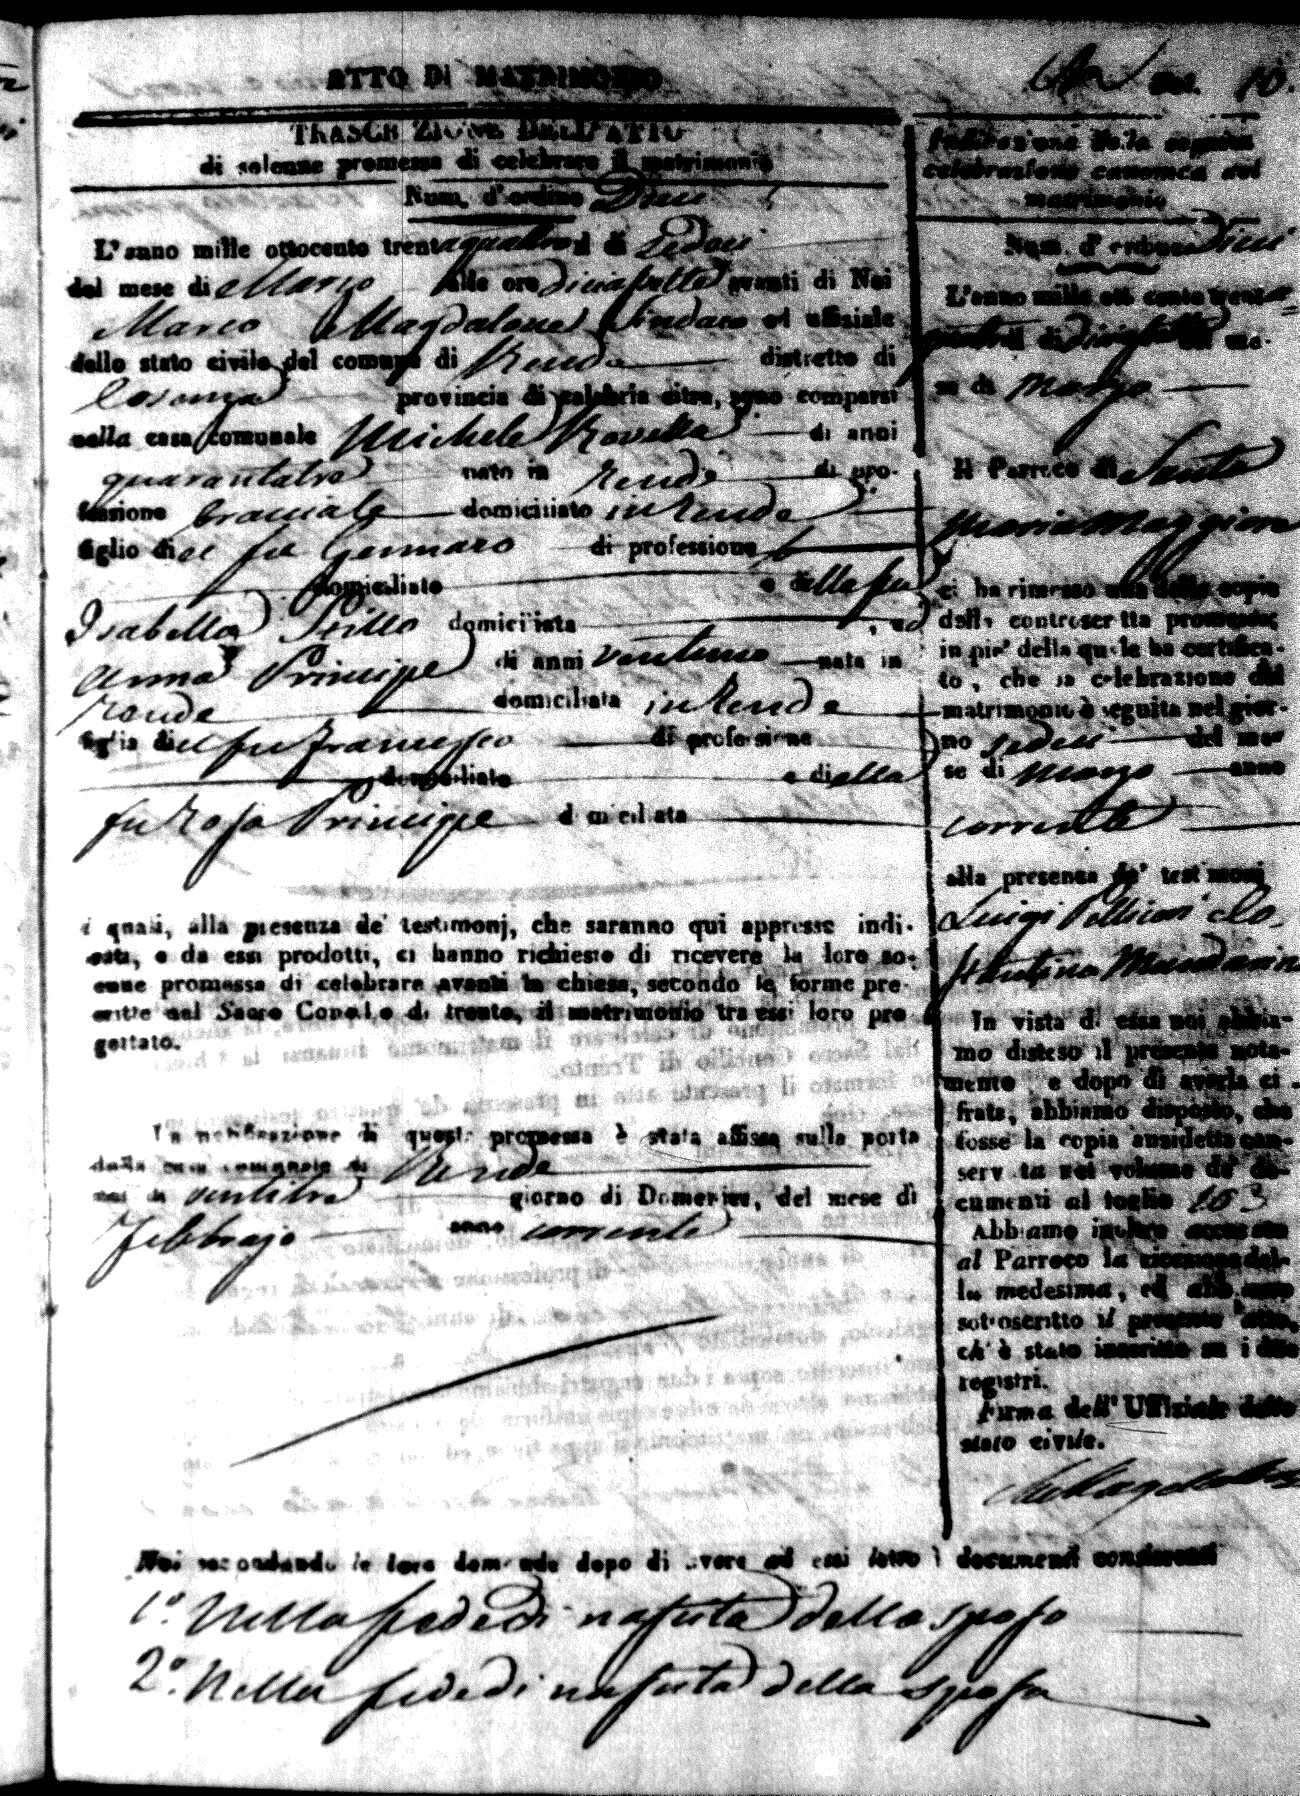 ATTO DI MATRIMONIO
Num. 10.
TRASCRIZIONE DELL'ATTO
di solenne promessa di celebrare il matrimonio
Num. d'ordine Dieci
L'anno mille ottocento trentaquattro il dì Sedeci
del mese di Marzo alle ore diciasette avanti di Noi
Marco Magdalone Sindaco ed uffiziale
dello stato civile del comune di Rende distretto di
Cosenza provincia di calabria citra, sono comparsi
nella casa comunale Michele Rovella di anni
quarantatre nato in Rende di pro-
fessione bracciale domiciliato in Rende
figlio di el fu Gennaro di professione
domiciliato e della fu
Isabella Lillo domiciliata , ed
Anna Principe di anni ventuno nata in
Rende domiciliata in Rende
figlia di el fu Francesco di professione
domiciliato e di ella
fu Rosa Principe domiciliata
i quali, alla presenza de' testimonj, che saranno qui appresso indi-
cati, e da essi prodotti, ci hanno richiesto di ricevere la loro so-
enne promessa di celebrare avanti la chiesa, secondo le forme pre-
scritte nel Sacro Concilio di trento, il matrimonio tra essi loro pro
gettato.
La notificazione di questa promessa è stata affissa sulla porta
della casa comunale di Rende
nel dì ventitre giorno di Domenica, del mese di
Febbrajo anno corrente
Indicazione della seguita
celebrazione canonica del
matrimonio
Num. d'ordine Dieci
L'anno mille otto cento trenta=
quattro il dì diciasette del me-
se di Marzo
Il Parroco di Santa
Maria Maggiore
ci ha rimesso una delle copie
della controscritta promessa;
in piè della quale ha certifica-
to, che la celebrazione del
matrimonio è seguita nel gior-
no sedeci del me-
se di Marzo anno
corrente
alla presenza de' testimonj
Luigi Pelliconi e Co-
stantino Mandarino
In vista di essa noi abbia-
mo disteso il presente nota-
mento e dopo di averla ci-
frata, abbiamo disposto, che
fosse la copia anzidetta con-
servata nel volume de' do-
cumenti al foglio 103
Abbiamo inoltre accusato
al Parroco la ricezione del-
la medesima, ed abbiamo
sottoscritto il presente atto,
ch' è stato inscritto su i due
registri.
Firma dell' Uffiziale dello
stato civile.
MMagdalone
Noi secondando le loro domande dopo di avere ad essi letto i documenti consistenti
1°. Nella fede di nascita dello sposo
2°. Nella fede di nascita della sposa